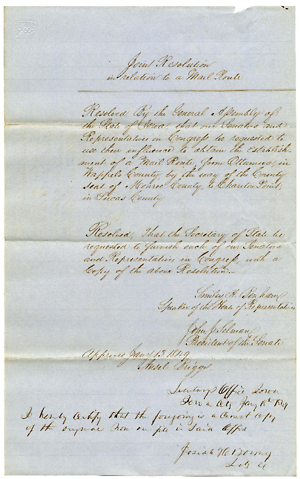 Joint Resolution
in relation to a Mail Route
Resolved By the General Assembly of
the State of Iowa that our Senators and
Representatives in Congress be requested to
use their influence to obtain the establish
ment of a Mail Route, from Ottumwa, in
Wapello County, by the way of the County
Seat of Monroe County, to Chariton Point,
in Lucas County
Resolved, That the Secretary of State be
requested to furnish each of our Senators
and Representatives in Congress, with a
Copy of the above Resolution.
Smiley H. Bonham
Speaker of the House of Representatives
John J. Selman
President of the Senate
Approved Jany 13 1849
Ansel Briggs
Secretary's Office Iowa
Iowa City Jany 1849
I hereby Certify that the foregoing is a correct copy
of the original now on file in said Office
Josiah H. Bonney